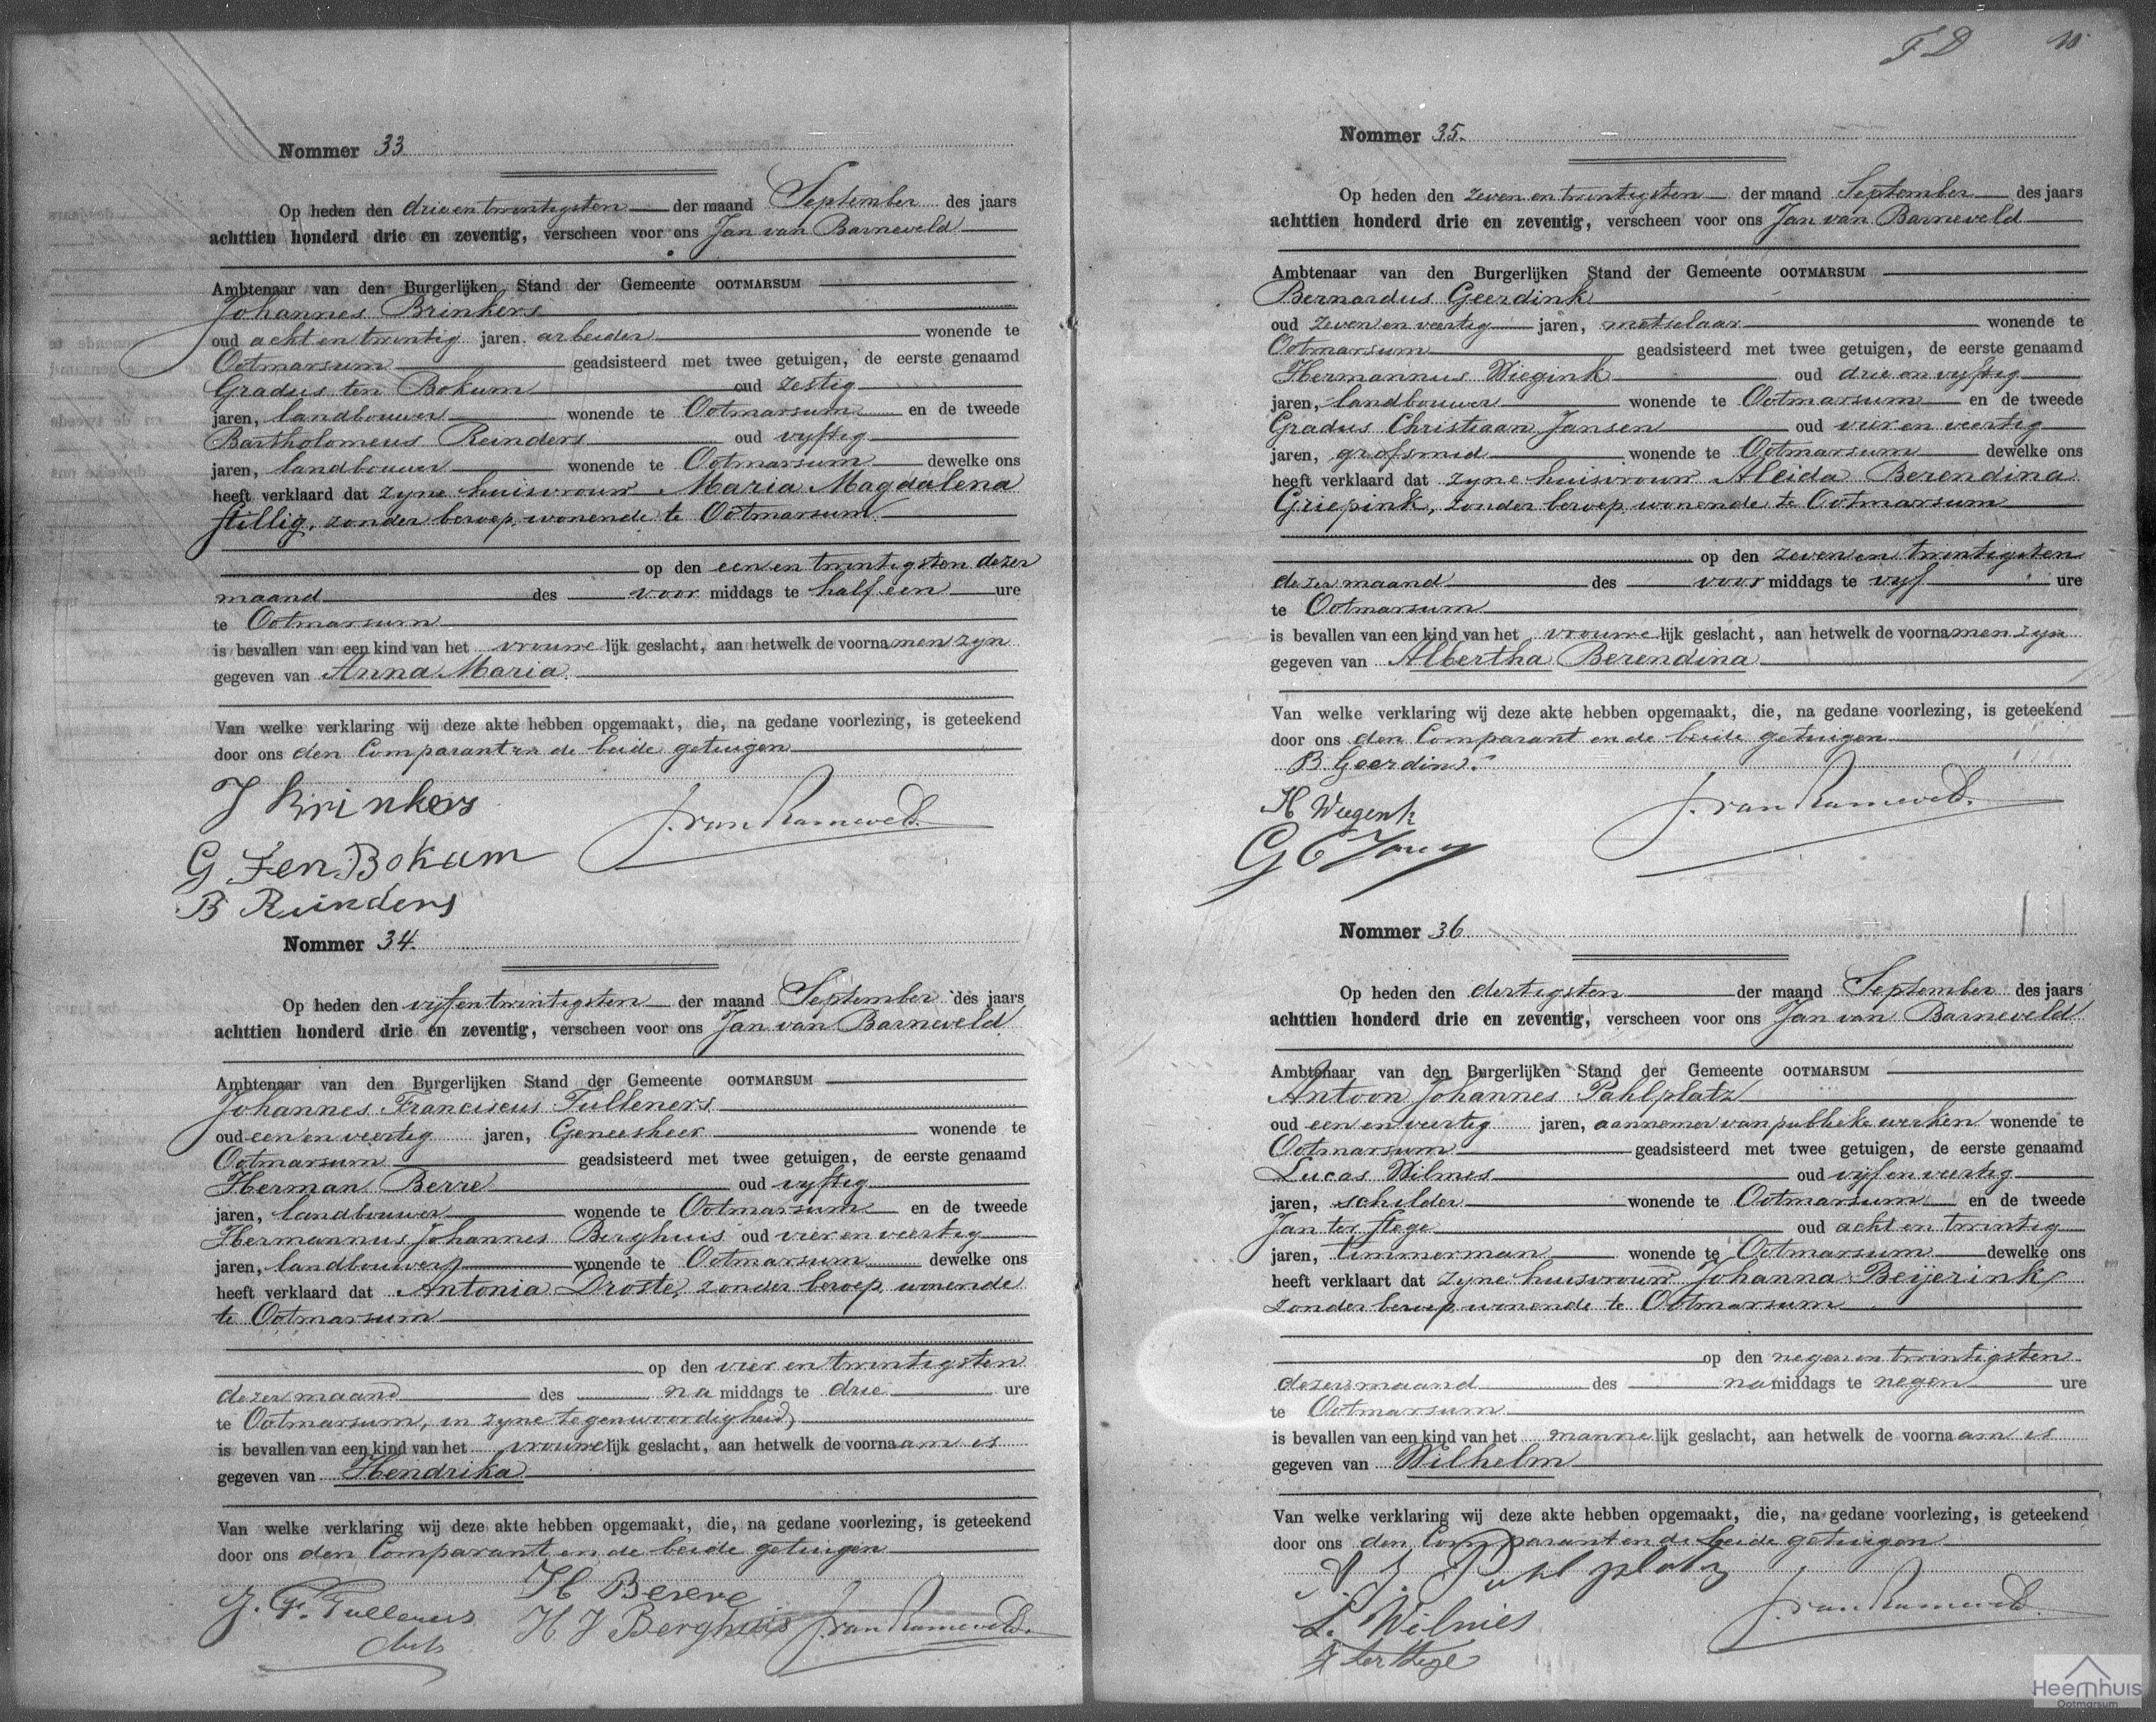 Nommer 33
Op heden den drie en twintigsten der maand September des jaars
achttien honderd drie en zeventig, verscheen voor ons Jan van Barneveld
Ambtenaar van den Burgerlijken Stand der Gemeente OOTMARSUM
Johannes Brinkers
oud acht en twintig jaren, arbeider wonende te
Ootmarsum geadsisteerd met twee getuigen, de eerste genaamd
Gradus ten Bokum oud zestig
jaren, landbouwer wonende te Ootmarsum en de tweede
Bartholomeus Reinders oud vyftig
jaren, landbouwer wonende te Ootmarsum dewelke ons
heeft verklaard dat zyne huisvrouw Maria Magdalena
Stillig, zonder beroep, wonende te Ootmarsum
op den een en twintigsten dezer
maand des voor middags te half een ure
te Ootmarsum
is bevallen van een kind van het vrouwelijk geslacht, aan hetwelk de voornamen zyn
gegeven van Anna Maria.
Van welke verklaring wij deze akte hebben opgemaakt, die, na gedane voorlezing, is geteekend
door ons den Comparant en de beide getuigen
J Brinkers
J. van Barneveld.
G Ten Bokum
B Reinders
Nommer 34.
Op heden den vyf en twintigsten der maand September des jaars
achttien honderd drie en zeventig, verscheen voor ons Jan van Barneveld
Ambtenaar van den Burgerlijken Stand der Gemeente OOTMARSUM
Johannes Franciscus Tulleners
oud een en veertig jaren, Geneesheer wonende te
Ootmarsum geadsisteerd met twee getuigen, de eerste genaamd
Herman Berre oud vyftig
jaren, landbouwer wonende te Ootmarsum en de tweede
Hermannus Johannes Berghuis oud vier en veertig
jaren, landbouwer wonende te Ootmarsum dewelke ons
heeft verklaard dat Antonia Droste, zonder beroep, wonende
te Ootmarsum
op den vier en twintigsten
dezer maand des na middags te drie ure
te Ootmarsum, in zyne tegenwoordigheid,
is bevallen van een kind van het vrouwelijk geslacht, aan hetwelk de voornaam is
gegeven van Hendrika
Van welke verklaring wij deze akte hebben opgemaakt, die, na gedane voorlezing, is geteekend
door ons den Comparant en de beide getuigen
H Bereve
J. F. Tulleners
H J Berghuis J. van Barneveld.
F D
Nommer 35.
Op heden den zeven en twintigsten der maand September des jaars
achttien honderd drie en zeventig, verscheen voor ons Jan van Barneveld
Ambtenaar van den Burgerlijken Stand der Gemeente OOTMARSUM
Bernardus Geerdink
oud zeven en veertig jaren, metselaar wonende te
Ootmarsum geadsisteerd met twee getuigen, de eerste genaamd
Hermannus Wiegink oud drie en vyftig
jaren, landbouwer wonende te Ootmarsum en de tweede
Gradus Christiaan Jansen oud vier en veertig
jaren, grofsmid wonende te Ootmarsum dewelke ons
heeft verklaard dat zyne huisvrouw Aleida Berendina
Griepink, zonder beroep, wonende te Ootmarsum
op den zeven en twintigsten
dezer maand des voor middags te vyf ure
te Ootmarsum
is bevallen van een kind van het vrouwelijk geslacht, aan hetwelk de voornamen zyn
gegeven van Albertha Berendina
Van welke verklaring wij deze akte hebben opgemaakt, die, na gedane voorlezing, is geteekend
door ons den Comparant en de beide getuigen
B Geerdink
H Wiegenk
J. van Barneveld.
G C
Nommer 36
Op heden den dertigsten der maand September des jaars
achttien honderd drie en zeventig, verscheen voor ons Jan van Barneveld
Ambtenaar van den Burgerlijken Stand der Gemeente OOTMARSUM
Antoon Johannes Pahlplatz
oud een en veertig jaren, aannemer van publieke werken wonende te
Ootmarsum geadsisteerd met twee getuigen, de eerste genaamd
Lucas Wilmes oud vyf en veertig
jaren, schilder wonende te Ootmarsum en de tweede
Jan ter Stege oud acht en twintig
jaren, timmerman wonende te Ootmarsum dewelke ons
heeft verklaart dat zyne huisvrouw Johanna Beijerink,
zonder beroep wonende te Ootmarsum
op den negen en twintigsten
dezer maand des na middags te negen ure
te Ootmarsum
is bevallen van een kind van het mannelijk geslacht, aan hetwelk de voornaam is
gegeven van Wilhelm
Van welke verklaring wij deze akte hebben opgemaakt, die, na gedane voorlezing, is geteekend
door ons den Comparant en de beide getuigen
A. J. Pahlplatz
L. Wilmes
J. van Barneveld.
J ter Stege
Heemhuis
Ootmarsum